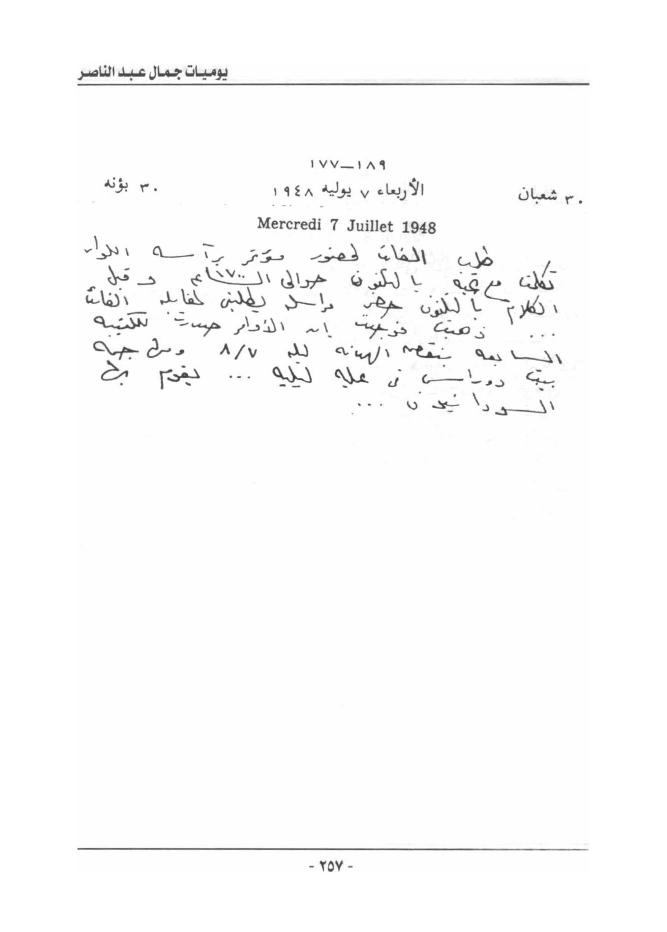 يوميات جمال عبد الناصر
١٨٩ــ١٧٧
٣٠ شعبان الأربعاء ٧ يوليه ١٩٤٨ ٣٠ بؤنه
Mercredi 7 Juillet 1948
طلب القائد لحضور مؤتمر برآسة اللواء
تكلمت مع تحية بالتليفون حوالى الساعة ١٧٠٠ وقبل
الكلام بالتليفون حضر مراسل يطلبنى لمقابلة القائد
... ذهبت فوجدت ان الأوامر صدرت للكتيبة
السابعة بنقطة الهدنة ليلة ٨/٧ ومن جهة
بيت دوراس فى عملية ليلية ... يقوم بها
السودانيون ...
- ٢٥٧ -